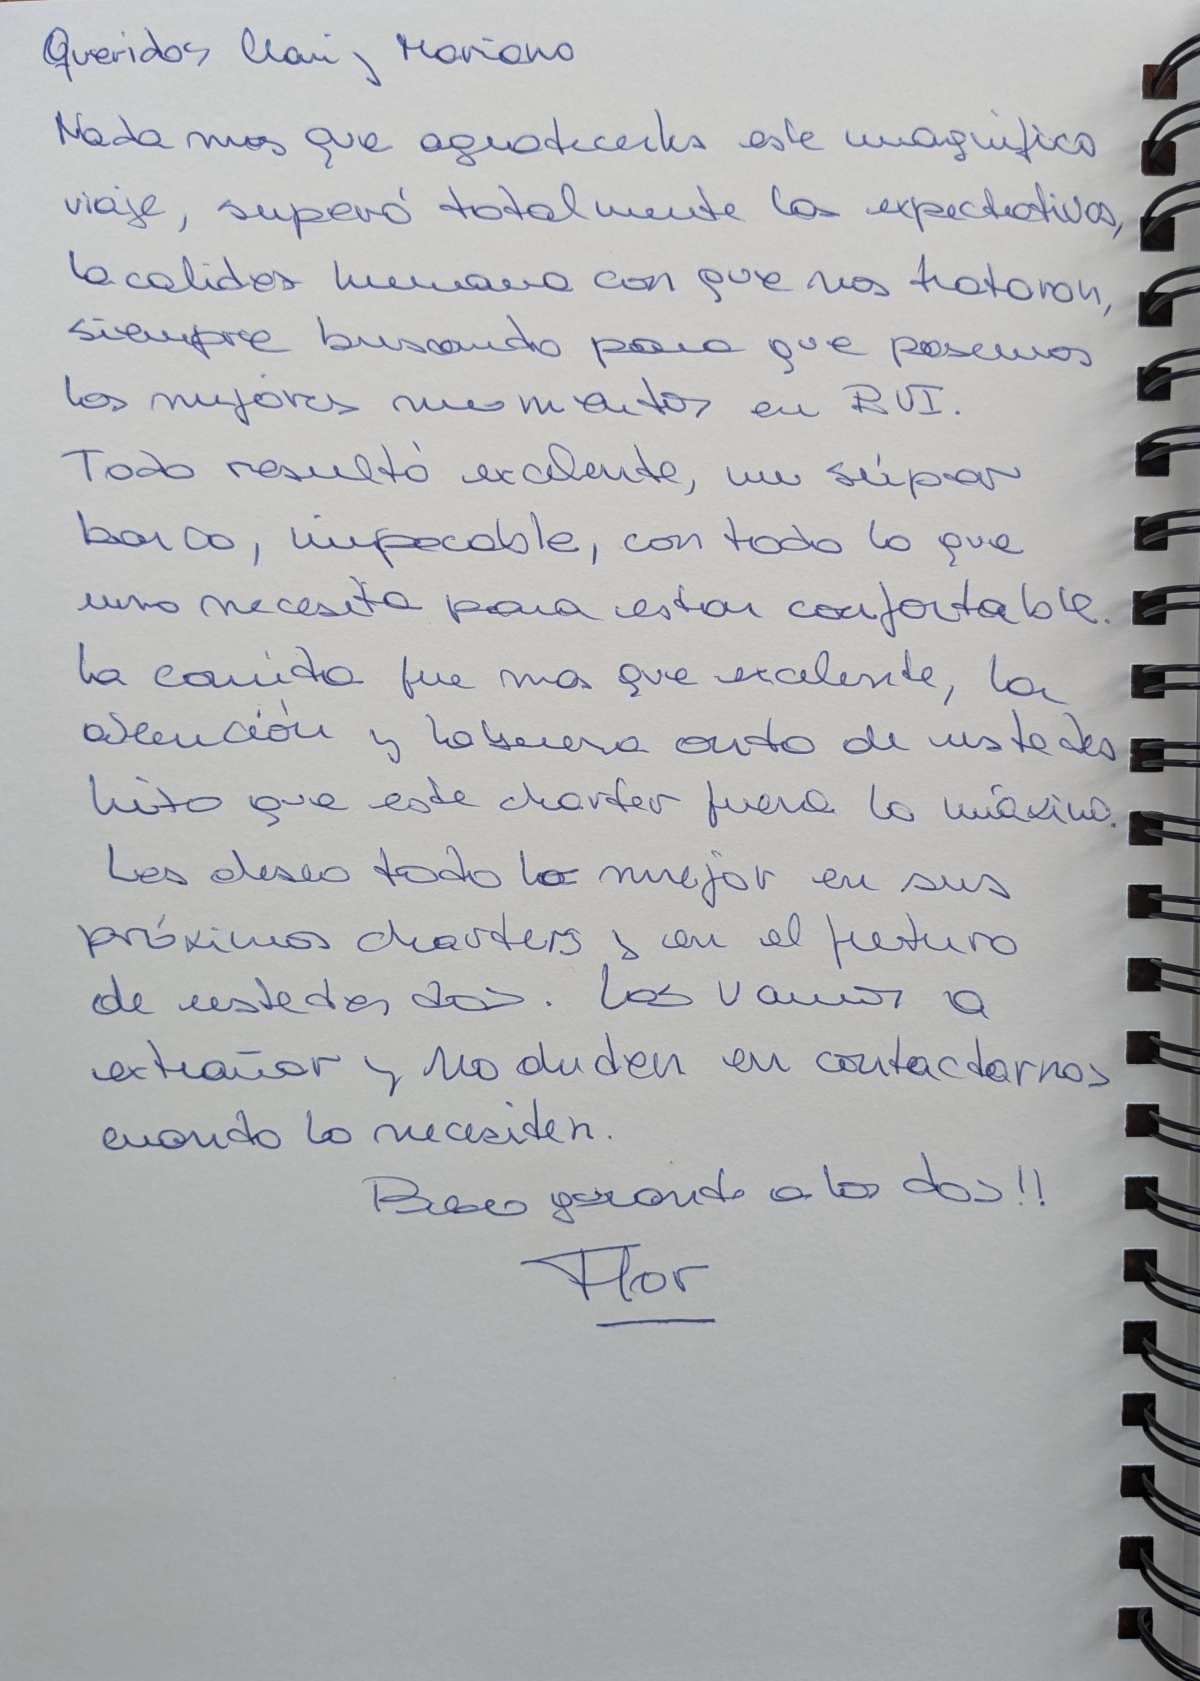 Queridos y Mariano
Nada mas que agradecerles este magnífico
viaje, superó totalmente las expectativas,
la calidez humana con que nos trataron,
siempre buscando para que pasemos
los mejores momentos en BVI.
Todo resultó excelente, un súper
barco, impecable, con todo lo que
uno necesita para estar confortable.
La comida fue mas que excelente, la
atención y la buena onda de ustedes
hizo que este charter fuera lo máximo.
Les deseo todo lo mejor en sus
próximos charters y en el futuro
de ustedes dos. Los vamos a
extrañar y no duden en contactarnos
cuando lo necesiten.
Beso grande a los dos!!
Flor